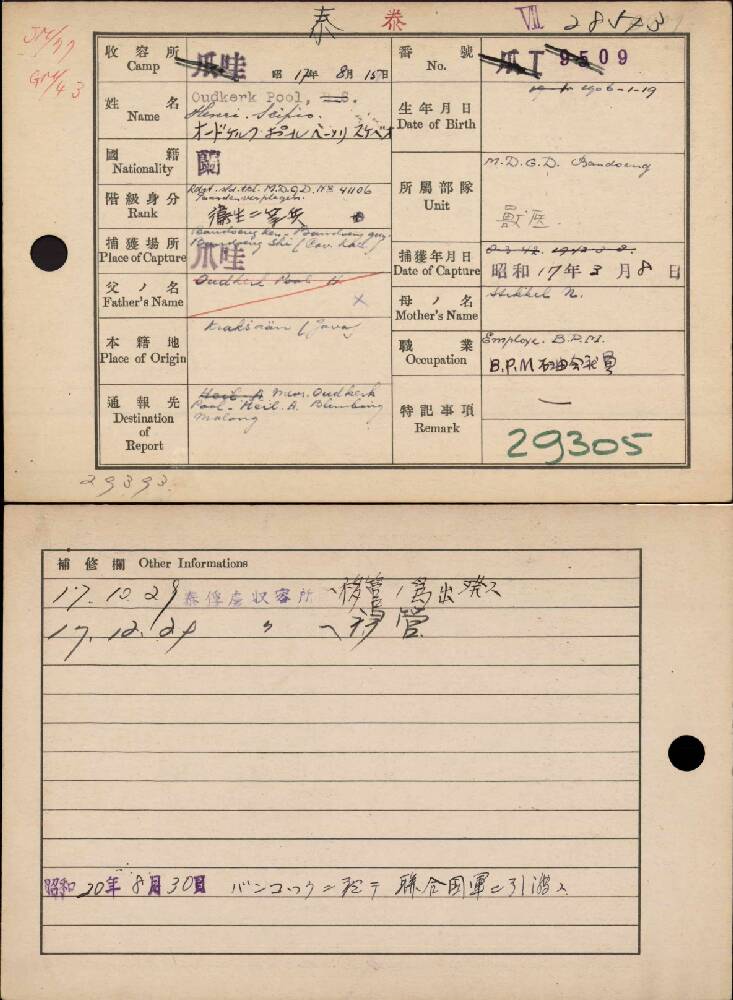 泰 泰 VII 285
収容所 Camp 爪哇 昭17年 8月 15日
番號 No. 爪 I 9509
姓名 Name Oudkerk Pool, H.S.
Henri. Scipio.
オードケルク・ポール ヘーンリ
生年月日 Date of Birth 1906-1-19
國籍 Nationality 蘭
階級身分 Rank M.D.G.D. 41106
Paardenverpleger.
衛生二等兵
所属部隊 Unit M.D.G.D. Bandoeng
獸医
捕獲場所 Place of Capture Bandoeng ken. Bandoeng
Bandoeng Shi
爪哇
捕獲年月日 Date of Capture
昭和17年3月8日
父ノ名 Father's Name Oudkerk Pool H. ×
母ノ名 Mother's Name N.
本籍地 Place of Origin Kraksaän (Java)
職業 Occupation Employe. B.P.M.
B.P.M 石油会社員
通報先 Destination of Report Heil. A Mevr. Oudkerk
Pool-Heil. A. Blimbing
Malang
特記事項 Remark —
29305
29393.
補修欄 Other Informations
17.10.29 泰俘虜収容所ヘ移管ノ為出発ス
17.12.24 〃 ヘ移管
昭和20年8月30日 バンコックニ於テ聯合国軍ニ引渡ス